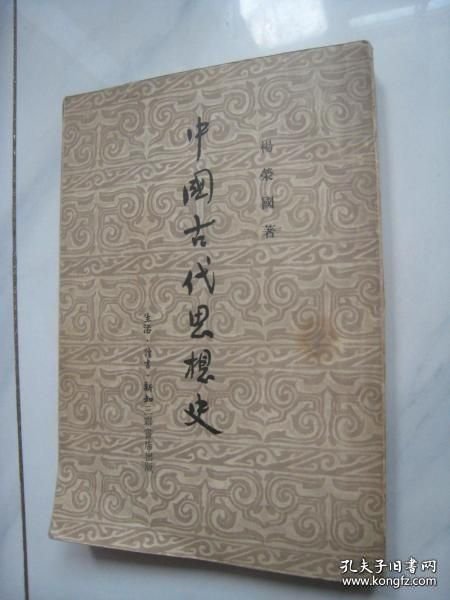 楊榮國著
中國古代思想史
生活·讀書·新知三聯書店出版
孔夫子旧书网
www.kongfz.com